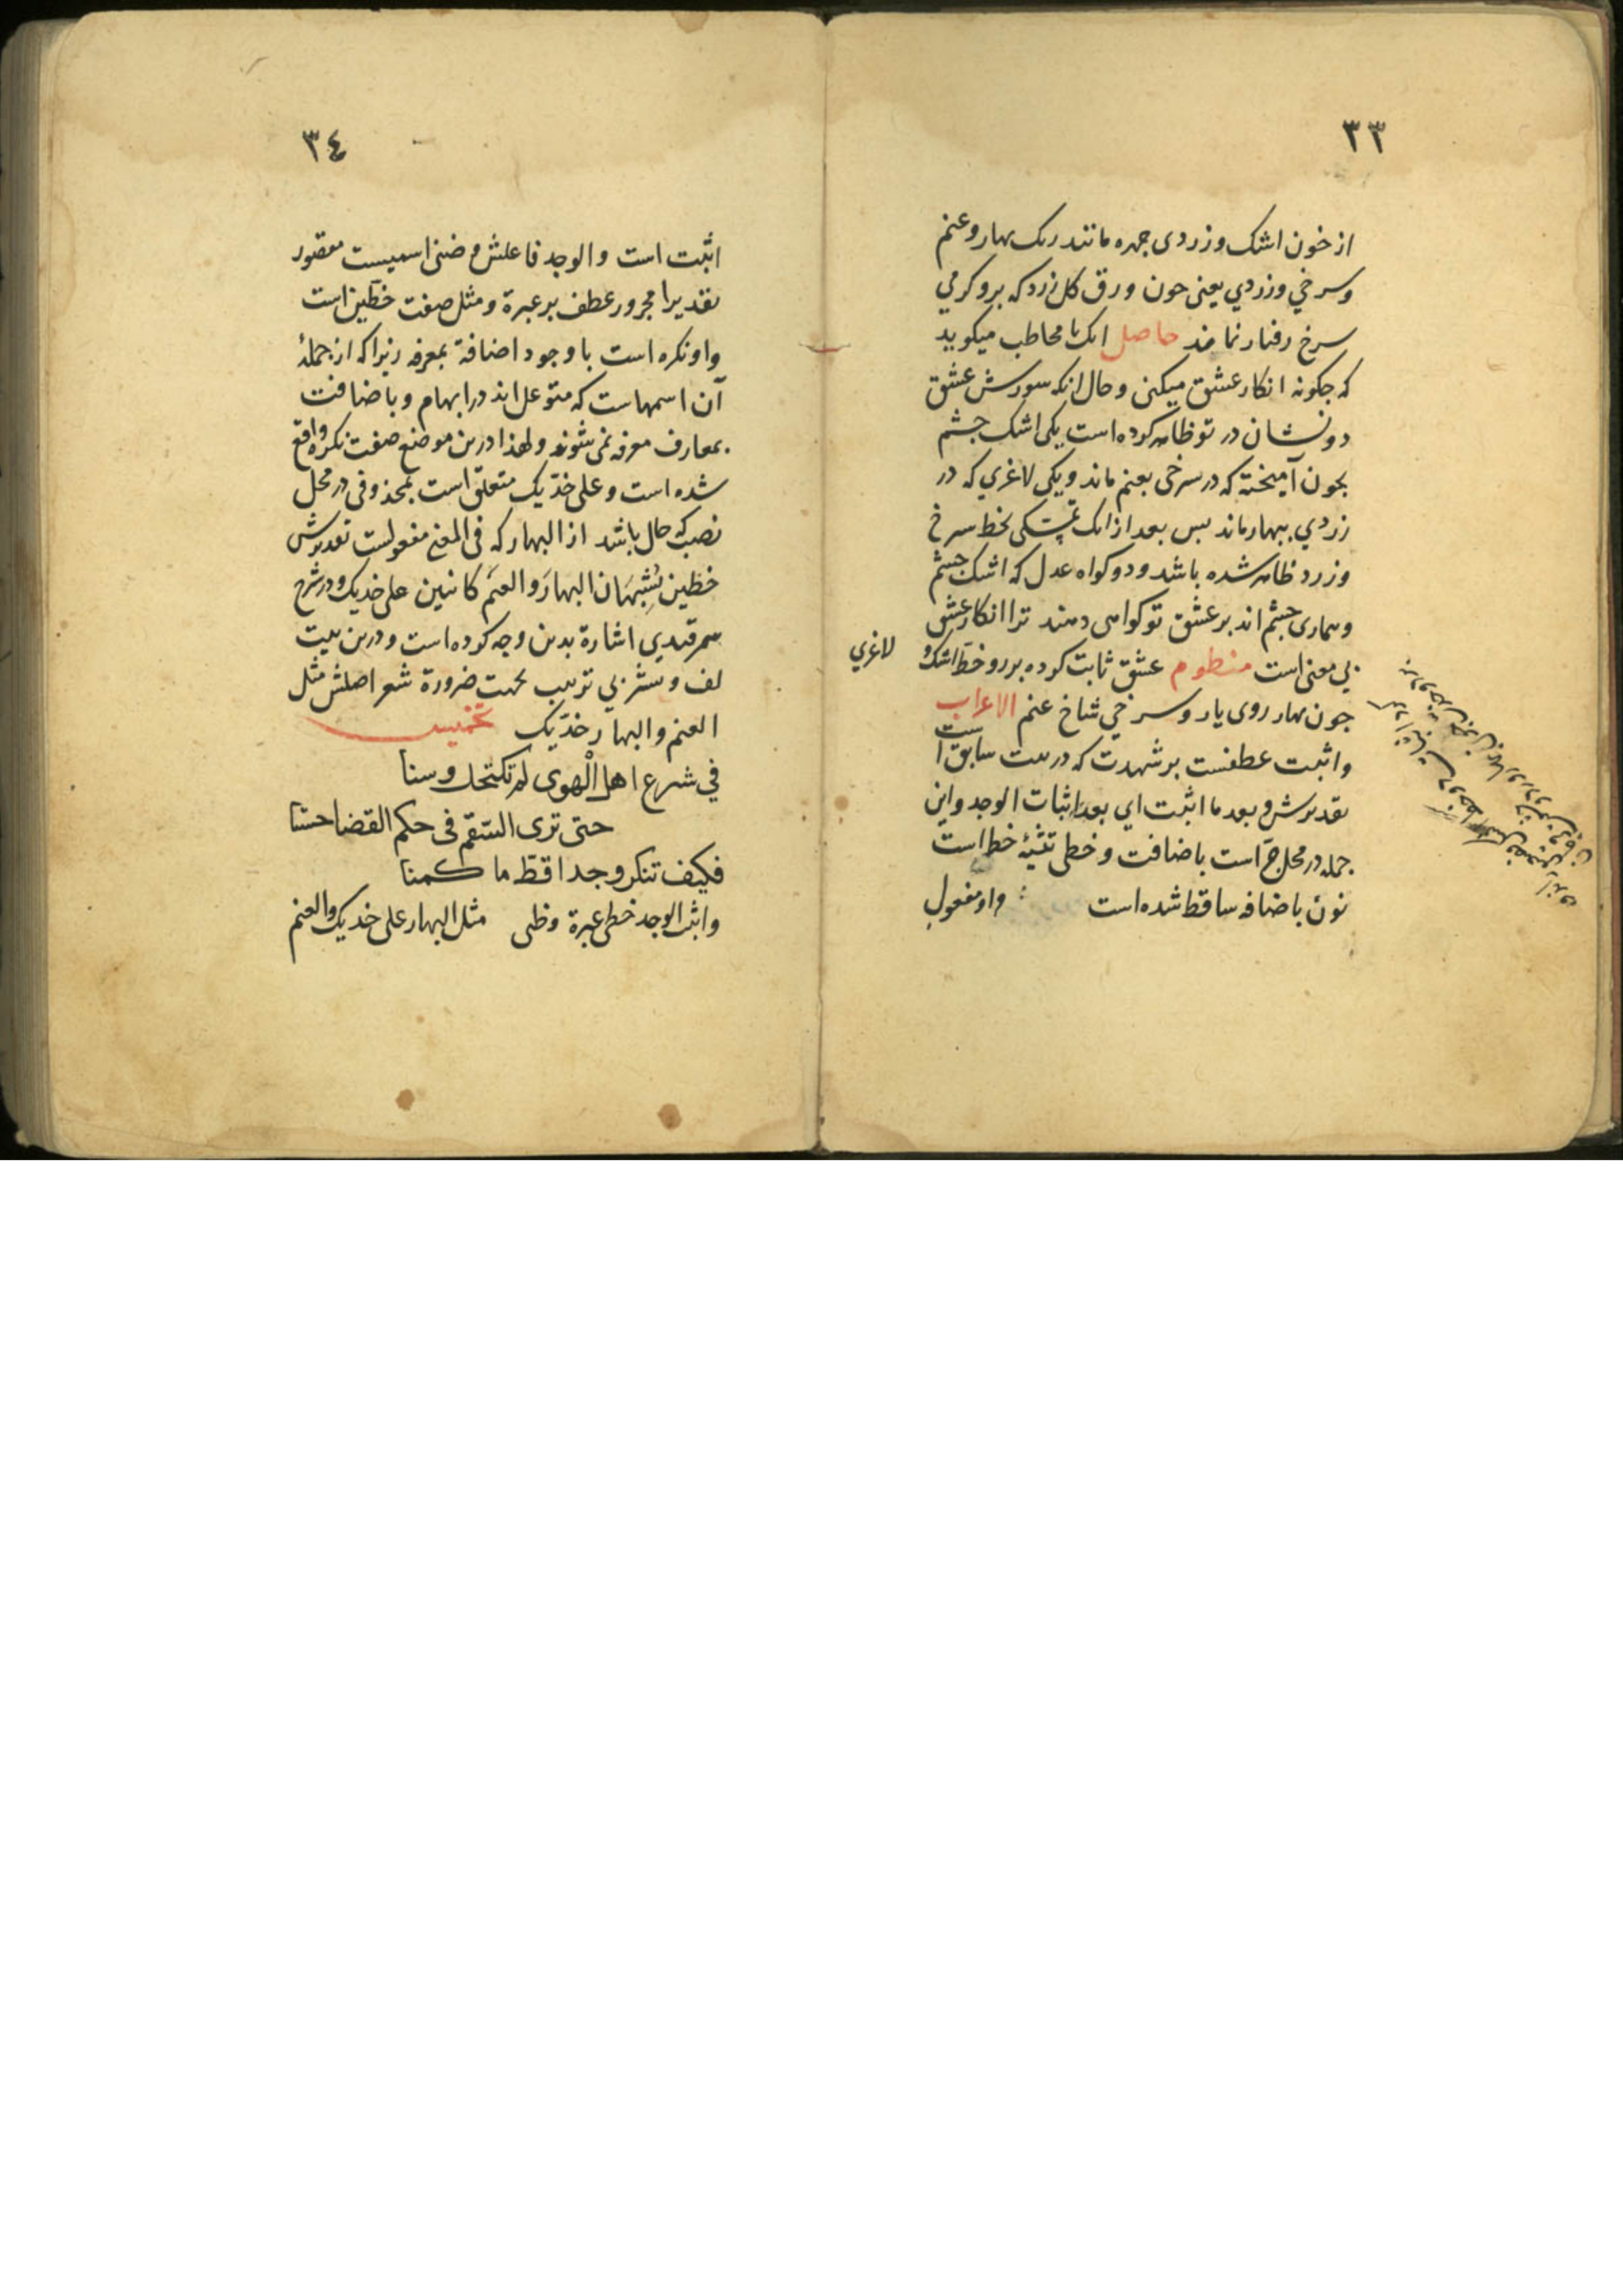 ٣٣
از خون اشک و زردی جهره مانند رنک بهار و عنم
و سرخي و زردي یعنی جون ورق کل زرد که برو کرمي
سرخ رفتار نماید حاصل انک با مخاطب میکوید
که جکونه انکار عشق میکنی و حال انکه سوزش عشق
دو نشان در تو ظاهر کوده است یکی اشک جشم
بخون آمیخته که در سرخی بعنم ماند و یکی لاغري که در
زردي ببهار ماند بس بعد از انک بخط سرخ
و زرد ظاهر شده باشد و دو کواه عدل که اشک جشم
و بیماری جشم اند بر عشق تو کواهی دهند ترا انکار عشق
بي معنی است منظوم عشق ثابت کوده بر رو خط اشک و لاغري
جون بهار روی یار و سرخي شاخ عنم الاعراب
و اثبت عطفست بر شهدت که در بیت سابق است
تقدیرش و بعد ما اثبت اي بعد اثبات الوجد و این
جمله در محل جر است باضافت و خطی تثنیۀ خط است
نون باضافه ساقط شده است و او مفعول
٣٤
اثبت است و الوجد فاعلش و ضنی اسمیست مقصور
تقدیرا مجرور عطف بر عبرة و مثل صفت خطین است
و او نکره است با وجود اضافة بمعرفه زیرا که از جملۀ
آن اسمهاست که متوغل اند در ابهام و باضافت
بمعارف معرفه نمی شوند و لهذا درین موضع صفت نکره واقع
شده است و علی خدیک متعلق است بمحذوفی در محل
نصب که حال باشد از البهار که فی المعنی مفعولست تقدیرش
خطین یُشبِهَان البهارَ و العنَم کائنین علی خدیک و در شرح
سمرقندي اشارة بدین وجه کوده است و درین بیت
لف و نشر بي ترتیب بجهت ضرورة شعر اصلش مثل
العنم و البهار خدّیک تخمیس
في شرع اهل الْهوى لم تکتحل وسنا
حتى ترى السّقم فى حکم القضا حسنا
فکیف تنکر وجدا قطّ ما کمنا
واثبت الوجد خطى عبرة وضنى مثل البهار على خدیک والعنم